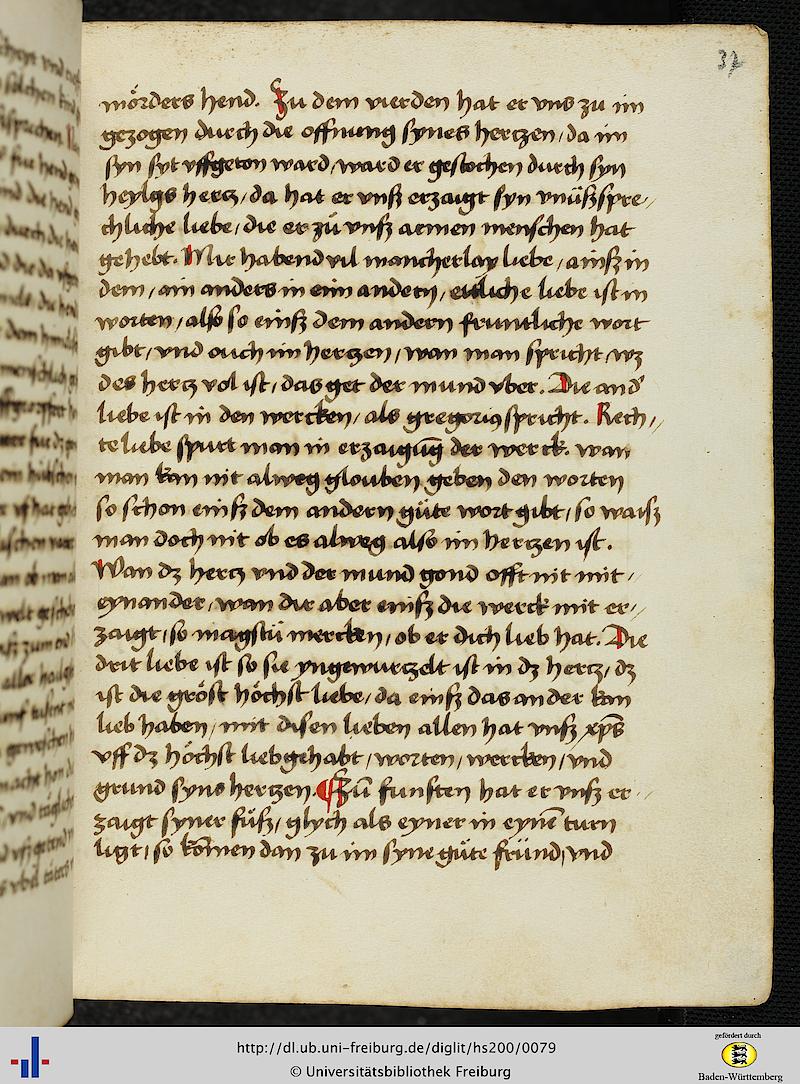 37
mörders hend. Zu dem vierden hat er vns zu im
gezogen durch die offnung synes hertzen / da im
syn syt vffgeton ward / ward er gestochen durch syn
heylgs hertz / da hat er vnß erzaigt syn vnüßspre /
chliche liebe / die er zů vnß armen menschen hat
gehebt. Wir habend vil mancherlay liebe / ainß in
dem / ain anders in eim andern / ettliche liebe ist in
worten / also so einß dem andern fruntliche wort
gibt / vnd ouch im hertzen / wan man spricht wz
des hertz vol ist / das get der mund vber. Die and'
liebe ist in den wercken / als gregorius spricht. Rech //
te liebe spurt man in erzaigūg der werck. wan
man kan nit alweg glouben geben den worten
so schon einß dem andern gůte wort gibt / so waiß
man doch nit ob es alweg also im hertzen ist.
Wan dz hertz vnd der mund gond offt nit mit /
eynander / wan dir aber einß die werck mit er //
zaigt / so magstu mercken / ob er dich lieb hat. Die
drit liebe ist so sie yngewurtzelt ist in dz hertz / dz
ist die gröst höchst liebe / da einß das ander kan
lieb haben / mit disen lieben allen hat vnß xp̄s
vff dz höchst lieb gehabt / worten / wercken / vnd
grund syns hertzen. ¶ Zū funften hat er vnß er //
zaigt syner fůß / glych als eyner in eynē turn
ligt / so kōmen dan zu im syne gůte fründ / vnd
http://dl.ub.uni-freiburg.de/diglit/hs200/0079
© Universitätsbibliothek Freiburg
gefördert durch
Baden-Württemberg